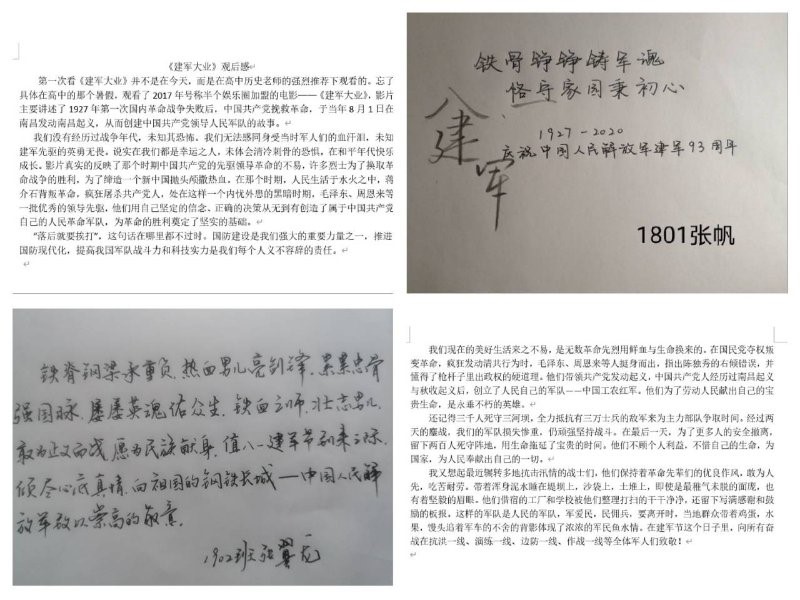 《建军大业》观后感
第一次看《建军大业》并不是在今天，而是在高中历史老师的强烈推荐下观看的。忘了
具体在高中的那个暑假，观看了 2017 年号称半个娱乐圈加盟的电影——《建军大业》，影片
主要讲述了 1927 年第一次国内革命战争失败后，中国共产党挽救革命，于当年 8 月 1 日在
南昌发动南昌起义，从而创建中国共产党领导人民军队的故事。
我们没有经历过战争年代，未知其恐怖。我们无法感同身受当时军人们的血汗泪，未知
建军先驱的英勇无畏，说实在我们都是幸运之人，未体会清冷刺骨的恐惧，在和平年代快乐
成长。影片真实的反映了那个时期中国共产党的先驱领导革命的不易，许多烈士为了换取革
命战争的胜利，为了缔造一个新中国抛头颅撒热血。在那个时期，人民生活于水火之中，蒋
介石背叛革命，疯狂屠杀共产党人，处在这样一个内忧外患的黑暗时期，毛泽东、周恩来等
一批优秀的领导先驱，他们用自己坚定的信念、正确的决策从无到有创造了属于中国共产党
自己的人民革命军队，为革命的胜利奠定了坚实的基础。
“落后就要挨打”，这句话在哪里都不过时。国防建设是我们强大的重要力量之一，推进
国防现代化，提高我国军队战斗力和科技实力是我们每个人义不容辞的责任。
铁骨铮铮铸军魂
恪守家国秉初心
八一
建军
1927-2020
庆祝中国人民解放军建军93周年
1801张帆
铁脊钢梁承重负，热血男儿亮剑锋。累累忠骨
强国脉，屡屡英魂佑众生。铁血之师，壮志男儿，
敢为正义而战，愿为民族献身。值八一建军节到来之际，
倾尽心底真情，向祖国的钢铁长城——中国人民解
放军致以崇高的敬意。
1902班 张翼龙
我们现在的美好生活来之不易，是无数革命先烈用鲜血与生命换来的。在国民党夺权叛
变革命，疯狂发动清共行为时，毛泽东、周恩来等人挺身而出，指出陈独秀的右倾错误，并
懂得了枪杆子里出政权的硬道理。他们带领共产党发动起义，中国共产党人经历过南昌起义
与秋收起义后，创立了人民自己的军队——中国工农红军。他们为了劳动人民献出自己的宝
贵生命，是永垂不朽的英雄。
还记得三千人死守三河坝，全力抵抗有三万士兵的敌军来为主力部队争取时间。经过两
天的鏖战，我们的军队损失惨重，仍顽强坚持战斗。在最后一天，为了更多人的安全撤离，
留下两百人死守阵地，用生命拖延了宝贵的时间。他们不顾个人利益，不惜自己的生命，为
国家，为人民奉献出自己的一切。
我又想起最近辗转多地抗击汛情的战士们，他们保持着革命先辈们的优良作风，敢为人
先，吃苦耐劳，带着浑身泥水睡在堤坝上，沙袋上，土堆上，即使是最雅气未脱的面庞，也
有着坚毅的眉眼。他们借宿的工厂和学校被他们整理打扫的干干净净，还留下写满感谢和鼓
励的板报。这样的军队是人民的军队，军爱民，民佣兵，要离开时，当地群众带着鸡蛋，水
果，馒头追着军车的不舍的背影体现了浓浓的军民鱼水情。在建军节这个日子里，向所有奋
战在抗洪一线、演练一线、边防一线、作战一线等全体军人们致敬！